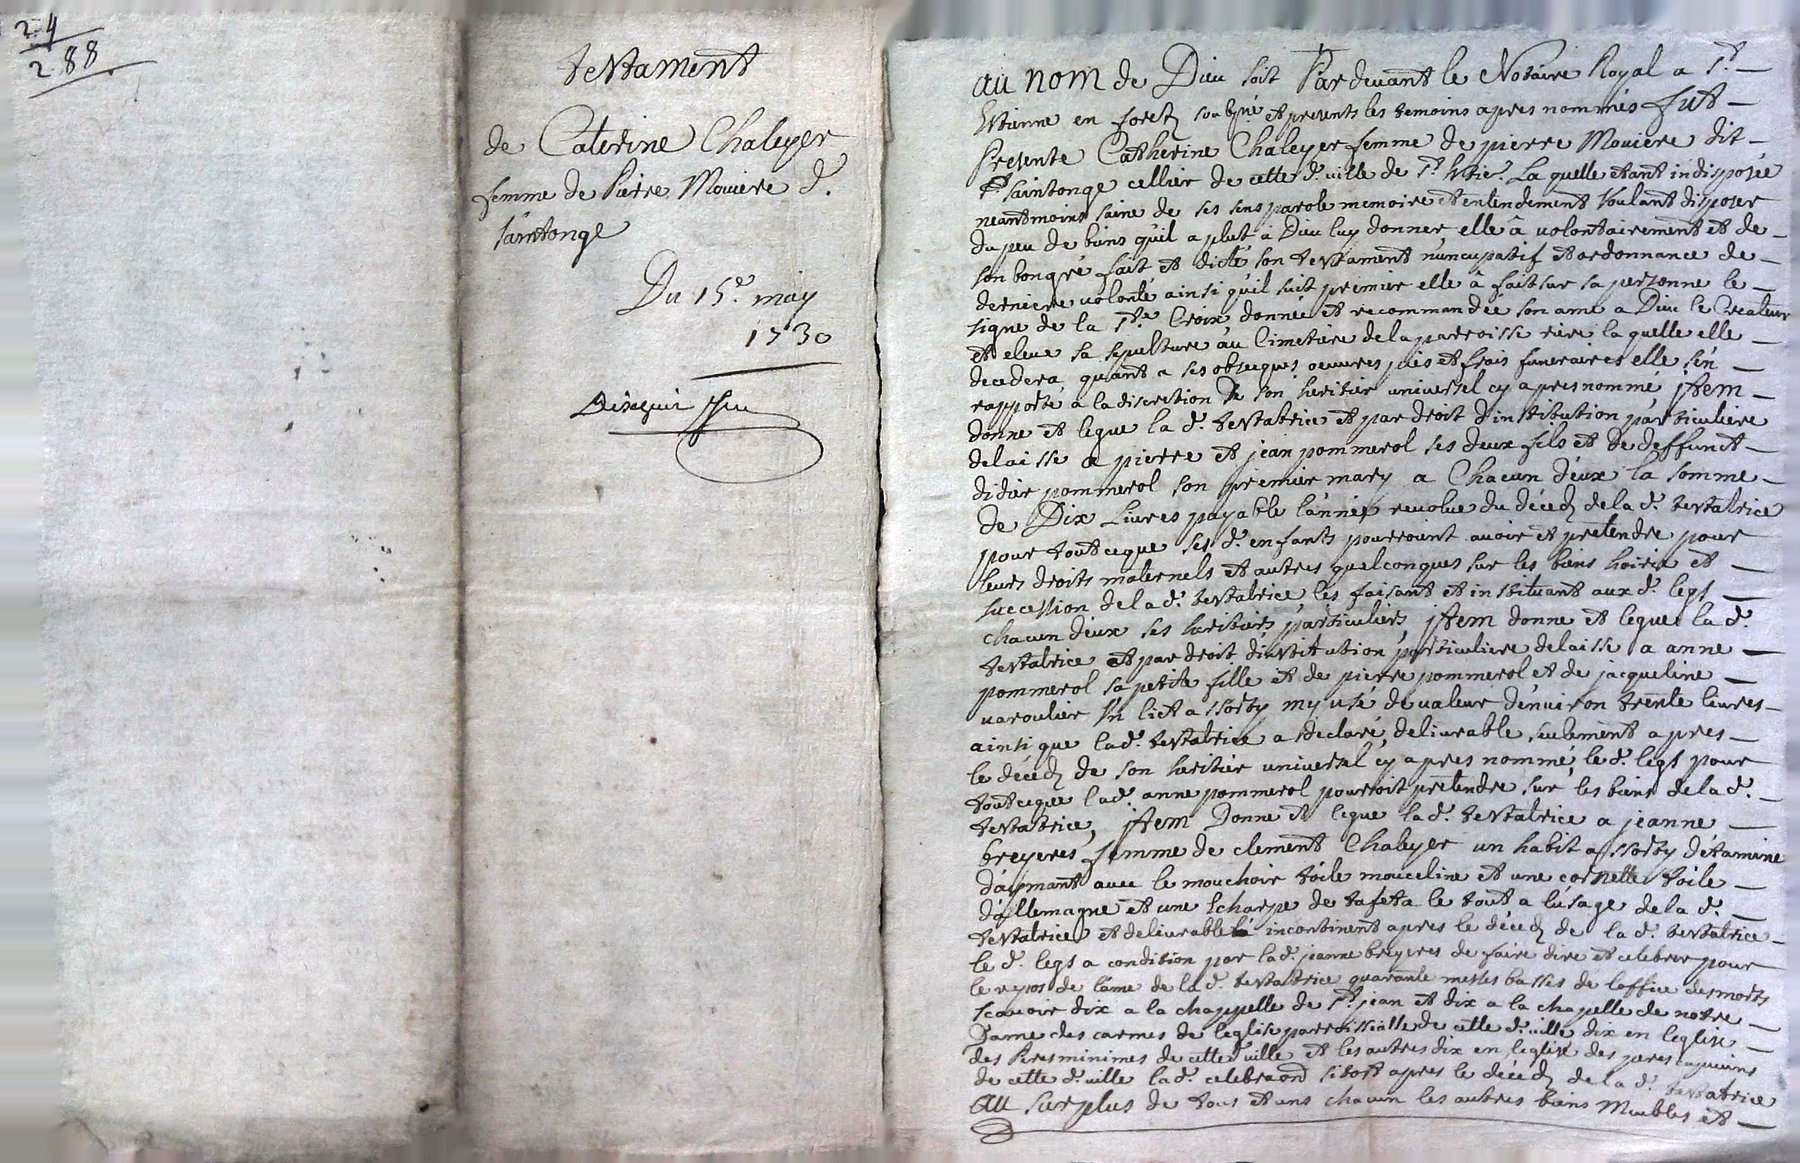 24
288
testament
de Caterine Chaleyer
femme de Pierre Moviere d.
saintonge
Du 15e may
1730
au nom de Dieu soit Pardevant le Notaire Royal a St
Estienne en foretz soubsné et presents les temoins apres nommés fut
Presente Catherine Chaleyer femme de pierre Moviere dit
saintonge cellier de cette d. ville de St Estie. La quelle etant indisposée
neantmoins saine de ses sens parole memoire et entendement voulant disposer
du peu de biens qu'il a plut a Dieu luy donner elle â volontairement et de
son bongré fait et dicté son testament nuncupatif et ordonnance de
derniere volonté ainsi qu'il suit premier elle â fait sur sa personne le
signe de la Ste Croix donnée et recommandée son ame a Dieu le Createur
et eleue sa sepulture au Cimetiere de la parroisse riere la quelle elle
decedera quant a ses obseques oeuvres pies et frais funeraires elle s'en
rapporte a la discretion de son heritier universel cy apres nommé, Item
donne et legue la d. testatrice et par droit d'institution particuliere
delaisse a pierre et jean pommerol ses deux fils et de deffunct
didier pommerol son premier mary a Chacun d'eux la somme
de Dix Livres payable l'année revolue du décedz de la d. testatrice
pour tout ce que ses d. enfants pourroient avoir et pretendre pour
leurs droits maternels et autres quelconques sur les biens hoirie et
succession de la d. testatrice les faisant et instituant aux d. legs
chacun d'eux ses heritiers particuliers, Item donne et legue la d.
testatrice et par droit d'institution particuliere delaisse a anne
pommerol sa petite fille et de pierre pommerol et de jacqueline
varoulier Un lict assorty my usé de valeur d'environ trente livres
ainsi que la d. testatrice a declaré, delivrable seulement apres
le décedz de son heritier universel cy apres nommé, le d. legs pour
tout ce que la d. anne pommerol pourroit pretendre sur les biens de la d.
testatrice, Item Donne et legue la d. testatrice a jeanne
breyeres femme de clement Chaleyer un habit assorty d'étamine
avec le mouchoir toile mouceline et une cornette toile
d'allemagne et une Echarpe de tafeta le tout a l'usage de la d.
testatrice et delivrable incontinent apres le décedz de la d. testatrice
le d. legs a condition par la d. jeanne breyeres de faire dire et celebrer pour
le repos de l'ame de la d. testatrice quarante messes basses de l'office des morts
scavoir dix a la chappelle de St jean et dix a la chapelle de notre
Dame des carmes de l'eglise parroissialle de cette d. ville dix en l'eglise
des Peres minimes de cette ville et les autres dix en l'eglise des peres capucins
de cette d. ville la d. sitost apres le décedz de la d. testatrice
au surplus de tous et uns chacun les autres biens Meubles et